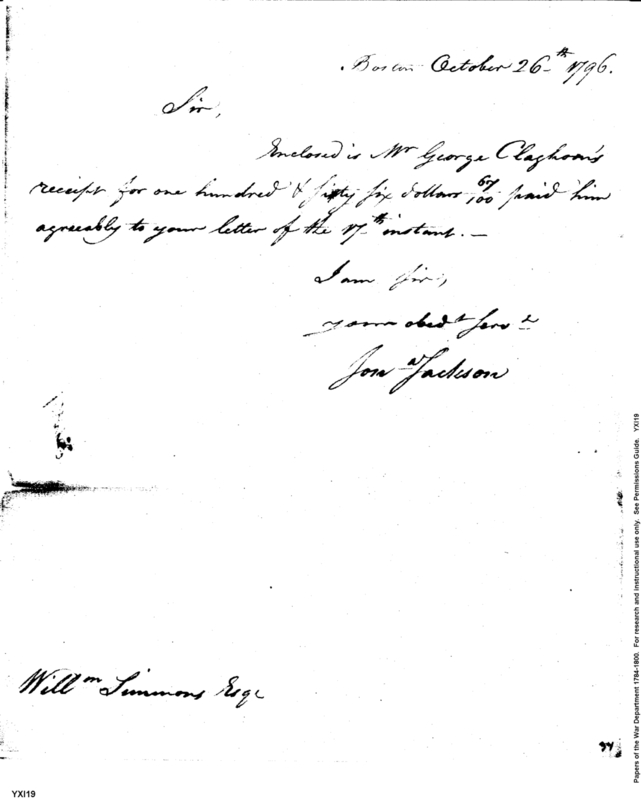 Boston October 26th 1796.
Sir,
Enclosed is Mr George Claghorn's
receipt for one hundred & sixty six dollars 67/100 paid him
agreeably to your letter of the 17th instant. —
I am Sir,
your obedt servt
Jona Jackson
Willm Simmons Esqr
34
YXI19
Papers of the War Department 1784-1800. For research and instructional use only. See Permissions Guide. YXI19